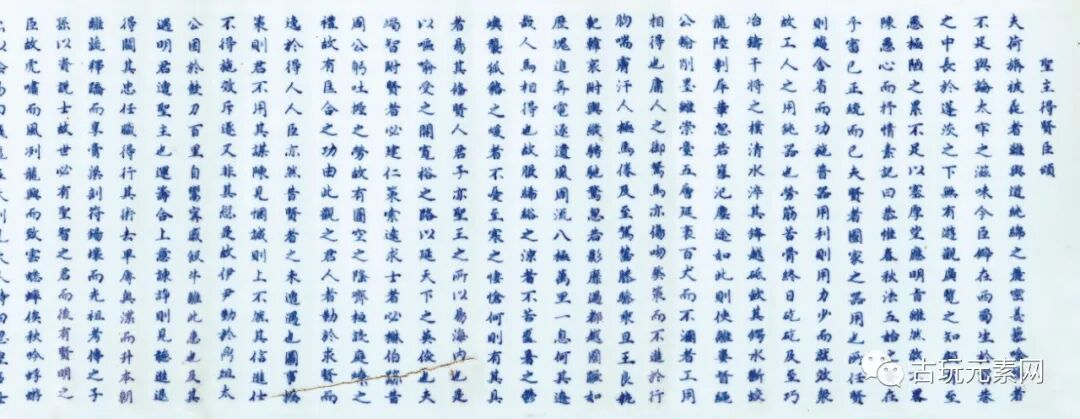 聖主得賢臣頌
夫荷旃被毳者難與道純綿之麗密羹藜唅
不足與論太牢之滋味今臣僻在西蜀生於巷
之中長於蓬茨之下無有遊觀廣覽之知至
愚極陋之累不足以塞厚望應明旨雖然敢
陳愚心而抒情素記曰恭惟春秋法五始在
乎審己正統而已夫賢者國家之器用也所任賢
則趨舍省而功施普器用利則用力少而就效衆
故工人之用鈍器也勞筋苦骨終日矻矻及至巧
冶鑄干將之樸清水淬其鋒越砥斂其鍔水斷蛟
龍陸剸犀革忽若篲汜塵塗如此則使離婁督繩
公輸削墨雖崇臺五層延袤百丈而不溷者工用
相得也庸人之御駑馬亦傷吻弊策而不進於行
胸喘膚汗人極馬倦及至駕齧膝驂乘旦王良執
靶韓哀附輿縱騁馳騖忽若影靡過都越國蹶如
歷塊追奔電逐遺風周流八極萬里一息何其遼
哉人馬相得也故服絺綌之涼者不苦盛暑之鬱
燠襲狐貉之煖者不憂至寒之悽愴何則有其具
者易其備賢人君子亦聖王之所以易海內也是
以嘔喻受之開寬裕之路以延天下之英俊也夫
竭智附賢者必建仁策索遠求士者必樹伯跡昔
周公躬吐握之勞故有圉空之隆齊桓設庭燎之
禮故有匡合之功由此觀之君人者勤於求賢而
逸於得人人臣亦然昔賢者之未遭遇也圖事揆
策則君不用其謀陳見悃誠則上不然其信進仕
不得施效斥逐又非其愆是故伊尹勤於鼎俎太
公困於鼓刀百里自鬻甯戚飯牛離此患也及其
遇明君遭聖主也運籌合上意諫諍則見聽進退
得關其忠任職得行其術去卑辱奧渫而升本朝
離疏釋蹻而享膏粱剖符錫壤而光祖考傳之子
孫以資說士故世必有聖智之君而後有賢明之
臣故虎嘯而風冽龍興而致雲蟋蟀俟秋吟蜉蝣
古玩元素网